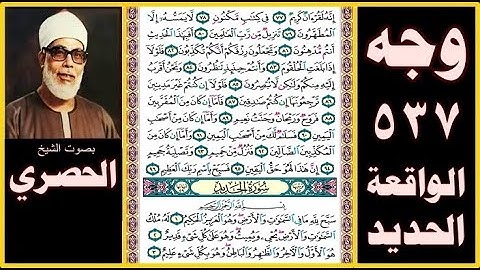 وجه
٥٣٧
الواقعة
الحديد
إِنَّهُ لَقُرْءَانٌ كَرِيمٌ ٧٧ فِي كِتَٰبٍ مَّكْنُونٍ ٧٨ لَّا يَمَسُّهُ إِلَّا
الْمُطَهَّرُونَ ٧٩ تَنزِيلٌ مِّن رَّبِّ الْعَٰلَمِينَ ٨٠ أَفَبِهَٰذَا الْحَدِيثِ
أَنتُم مُّدْهِنُونَ ٨١ وَتَجْعَلُونَ رِزْقَكُمْ أَنَّكُمْ تُكَذِّبُونَ ٨٢ فَلَوْلَا
إِذَا بَلَغَتِ الْحُلْقُومَ ٨٣ وَأَنتُمْ حِينَئِذٍ تَنظُرُونَ ٨٤ وَنَحْنُ أَقْرَبُ
إِلَيْهِ مِنكُمْ وَلَٰكِن لَّا تُبْصِرُونَ ٨٥ فَلَوْلَا إِن كُنتُمْ غَيْرَ مَدِينِينَ
٨٦ تَرْجِعُونَهَا إِن كُنتُمْ صَٰدِقِينَ ٨٧ فَأَمَّا إِن كَانَ مِنَ الْمُقَرَّبِينَ
٨٨ فَرَوْحٌ وَرَيْحَانٌ وَجَنَّتُ نَعِيمٍ ٨٩ وَأَمَّا إِن كَانَ مِنْ أَصْحَٰبِ
الْيَمِينِ ٩٠ فَسَلَٰمٌ لَّكَ مِنْ أَصْحَٰبِ الْيَمِينِ ٩١ وَأَمَّا إِن كَانَ مِنَ
الْمُكَذِّبِينَ الضَّالِّينَ ٩٢ فَنُزُلٌ مِّنْ حَمِيمٍ ٩٣ وَتَصْلِيَةُ جَحِيمٍ
٩٤ إِنَّ هَٰذَا لَهُوَ حَقُّ الْيَقِينِ ٩٥ فَسَبِّحْ بِاسْمِ رَبِّكَ الْعَظِيمِ ٩٦
سُورَةُ الْحَدِيدِ
بِسْمِ اللَّهِ الرَّحْمَٰنِ الرَّحِيمِ
سَبَّحَ لِلَّهِ مَا فِي السَّمَٰوَٰتِ وَالْأَرْضِ وَهُوَ الْعَزِيزُ الْحَكِيمُ ١ لَهُ مُلْكُ
السَّمَٰوَٰتِ وَالْأَرْضِ يُحْيِ وَيُمِيتُ وَهُوَ عَلَىٰ كُلِّ شَيْءٍ قَدِيرٌ ٢
هُوَ الْأَوَّلُ وَالْآخِرُ وَالظَّٰهِرُ وَالْبَاطِنُ وَهُوَ بِكُلِّ شَيْءٍ عَلِيمٌ ٣
بصوت الشيخ
الحصري